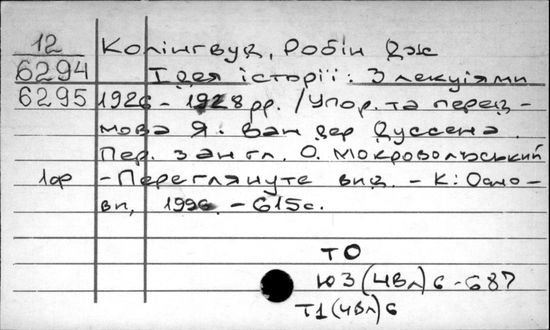 12 Колінгвуд, Робін Дж
6294 Ідея історії: З лекціями
6295 1926 - 1928 рр. / Упор. та перед-
мова Я. Ван дер Дуссена.
Пер. з англ. О. Мокровольський
1ор - Переглянуте вид. - К: Осно-
ви, 1996. - 615с.
ТО
Ю3(4Вл)6-687
Т1(4Вл)6